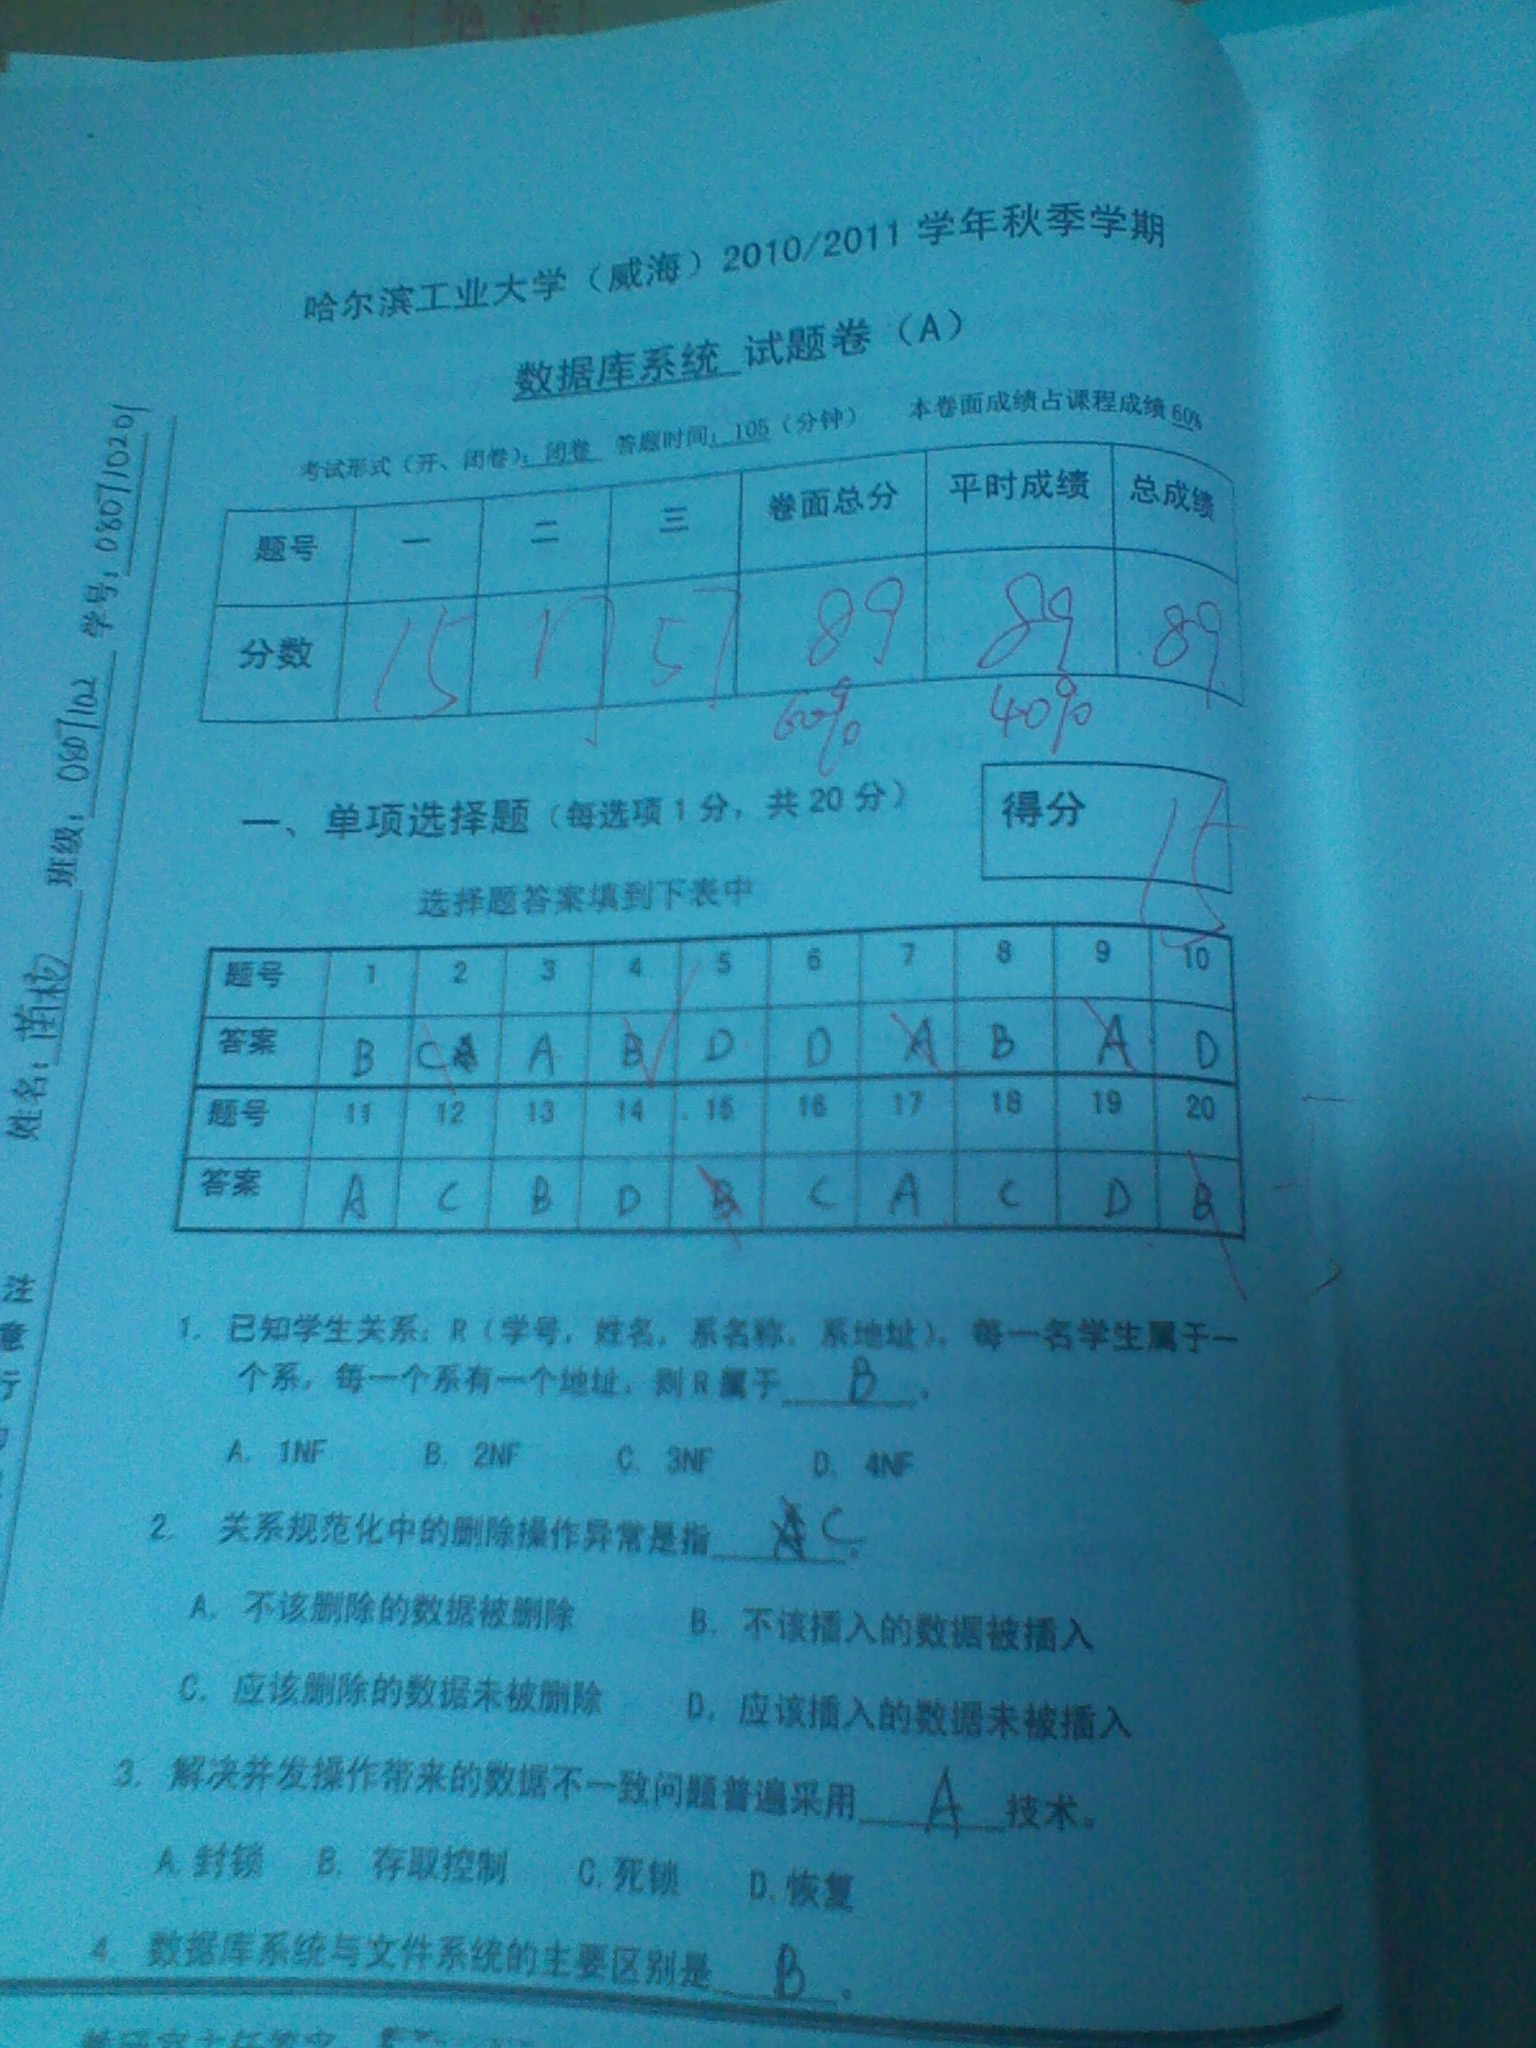 哈尔滨工业大学（威海）2010/2011 学年秋季学期
数据库系统 试题卷（A）
考试形式（开、闭卷）：闭卷 答题时间：105（分钟） 本卷面成绩占课程成绩 60%
题号 一 二 三 卷面总分 平时成绩 总成绩
分数 15 17 57 89 89 89
60% 40%
一、单项选择题（每选项 1 分，共 20 分）
得分 15
选择题答案填到下表中
题号 1 2 3 4 5 6 7 8 9 10
答案 B C A B D D A B A D
题号 11 12 13 14 15 16 17 18 19 20
答案 A C B D B C A C D B
1. 已知学生关系：R（学号，姓名，系名称，系地址），每一名学生属于一
个系，每一个系有一个地址，则 R 属于 B 。
A. 1NF B. 2NF C. 3NF D. 4NF
2. 关系规范化中的删除操作异常是指 A C 。
A. 不该删除的数据被删除 B. 不该插入的数据被插入
C. 应该删除的数据未被删除 D. 应该插入的数据未被插入
3. 解决并发操作带来的数据不一致问题普遍采用 A 技术。
A.封锁 B. 存取控制 C.死锁 D.恢复
4. 数据库系统与文件系统的主要区别是 B 。
姓名： 班级：0807102 学号：080710201
注
意
行